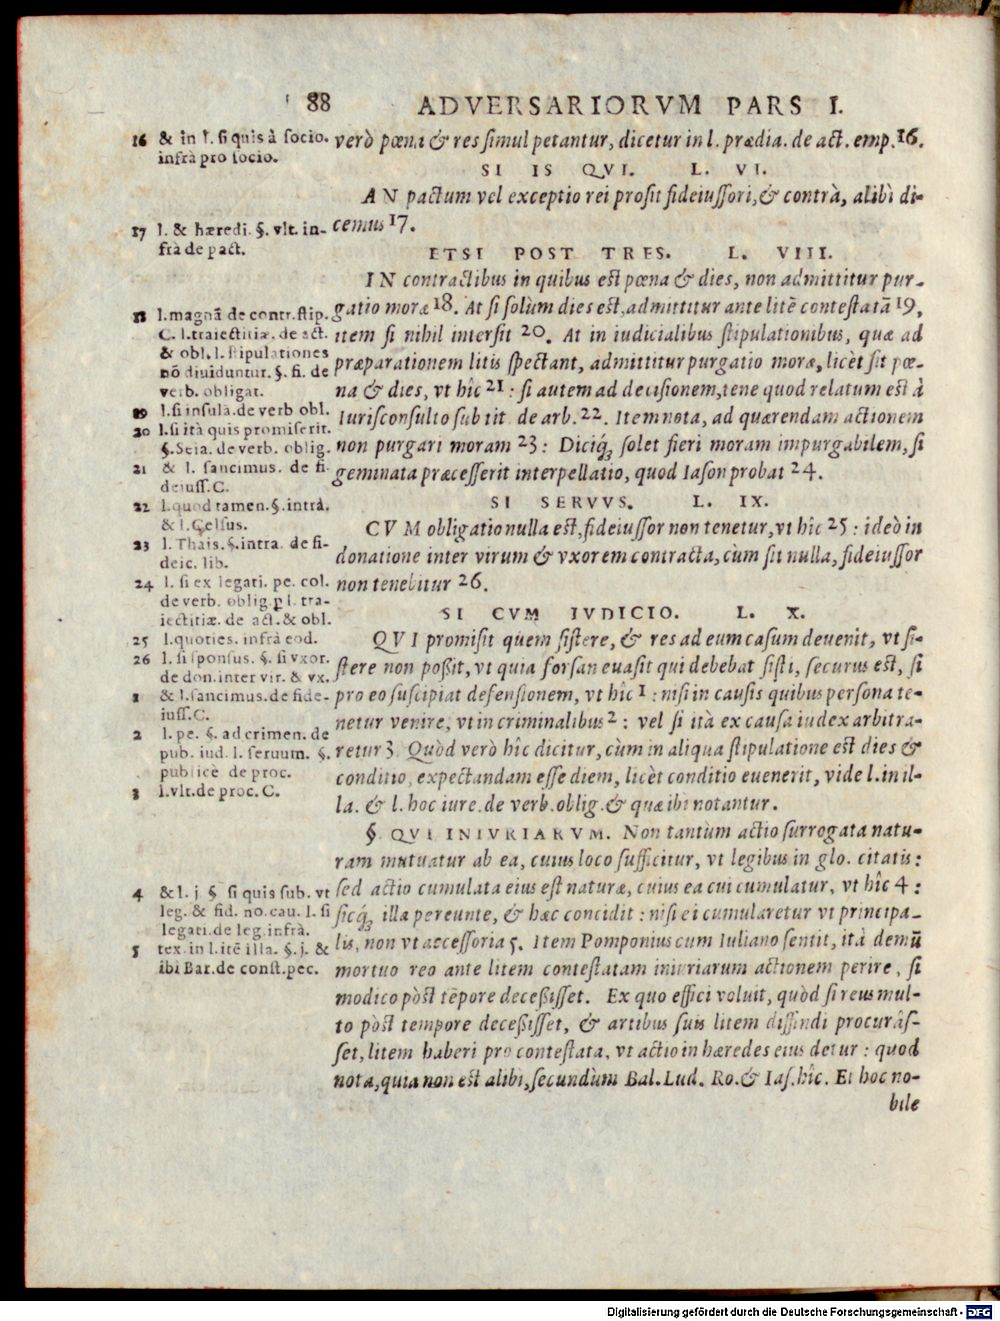 88 ADVERSARIORVM PARS I.
verò pœna & res simul petantur, dicetur in l. prædia. de act. emp. 16.
SI IS QVI. L. VI.
AN pactum vel exceptio rei prosit fideiussori, & contrà, alibi di-
cemus 17.
ETSI POST TRES. L. VIII.
IN contractibus in quibus est pœna & dies, non admittitur pur-
gatio moræ 18. At si solùm dies est, admittitur ante litē contestatā 19,
item si nihil intersit 20. At in iudicialibus stipulationibus, quæ ad
præparationem litis spectant, admittitur purgatio moræ, licèt sit pœ-
na & dies, vt hîc 21 : si autem ad decisionem, tene quod relatum est à
Iurisconsulto sub tit de arb. 22. Item nota, ad quærendam actionem
non purgari moram 23 : Diciq́ꝫ solet fieri moram impurgabilem, si
geminata præcesserit interpellatio, quod Iason probat 24.
SI SERVVS. L. IX.
CVM obligatio nulla est, fideiussor non tenetur, vt hîc 25 : ideò in
donatione inter virum & vxorem contracta, cùm sit nulla, fideiussor
non tenebitur 26.
SI CVM IVDICIO. L. X.
QVI promisit quem sistere, & res ad eum casum deuenit, vt si-
stere non poßit, vt quia forsan euasit qui debebat sisti, securus est, si
pro eo suscipiat defensionem, vt hîc 1 : nisi in causis quibus persona te-
netur venire, vt in criminalibus 2 : vel si ità ex causa iudex arbitra-
retur 3 Quòd verò hîc dicitur, cùm in aliqua stipulatione est dies &
conditio, expectandam esse diem, licèt conditio euenerit, vide l. in il-
la. & l. hoc iure. de verb. oblig. & quæ ibi notantur.
§. QVI INIVRIARVM. Non tantùm actio surrogata natu-
ram mutuatur ab ea, cuius loco sufficitur, vt legibus in glo. citatis :
sed actio cumulata eius est naturæ, cuius ea cui cumulatur, vt hîc 4 :
sicq́ꝫ illa pereunte, & hæc concidit : nisi ei cumularetur vt principa-
lis, non vt accessoria 5. Item Pomponius cum Iuliano sentit, ità demū
mortuo reo ante litem contestatam iniuriarum actionem perire, si
modico pòst tēpore deceßisset. Ex quo effici voluit, quòd si reus mul-
to pòst tempore deceßisset, & artibus suis litem diffindi procurâs-
set, litem haberi pro contestata, vt actio in hæredes eius detur : quod
nota, quia non est alibi, secundùm Bal. Lud. Ro. & Ias. hîc. Et hoc no-
bile
16 & in l. si quis à socio.
infrà pro socio.
17 l. & hæredi. §. vlt. in-
frà de pact.
18 l. magnā de contr. stip.
C. l. traiectitiæ. de act.
& obl. l. stipulationes
nō diuiduntur. §. fi. de
verb. obligat.
19 l. si insulā. de verb obl.
20 l. si ità quis promiserit.
§. Seia. de verb. oblig.
21 & l. sancimus. de fi-
deiuss. C.
22 l. quod tamen. §. intrà.
& l. Celsus.
23 l. Thais. §. intra. de fi-
deic. lib.
24 l. si ex legati. pe. col.
de verb. oblig. ꝑ l. tra-
iectitiæ. de act. & obl.
25 l. quoties. infrà eod.
26 l. si sponsus. §. si vxor.
de don. inter vir. & vx.
1 & l. sancimus. de fide-
iuss. C.
2 l. pe. §. ad crimen. de
pub. iud. l. seruum. §.
publicè de proc.
3 l. vlt. de proc. C.
4 & l. j. § si quis sub. vt
leg. & fid. no. cau. l. si
legati. de leg. infrà.
5 tex. in l. itē illa. §. j. &
ibi Bar. de const. pec.
Digitalisierung gefördert durch die Deutsche Forschungsgemeinschaft - DFG